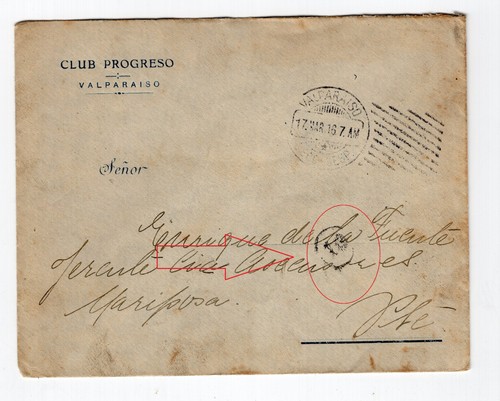 CLUB PROGRESO
VALPARAISO
VALPARAISO
17.MAR.16 7.AM
Señor
Enrique de la Fuente
Gerente
Mariposa.
Pte